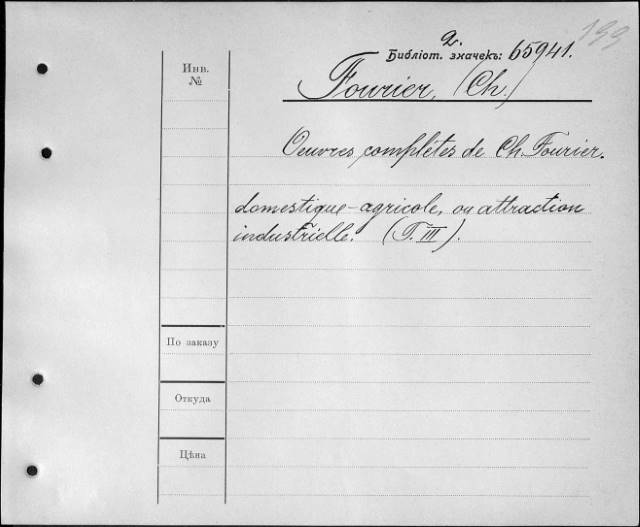 199
2.
Библіот. значекъ: 65941.
Инв.
№
Fourier, (Ch.)
Oeuvres complètes de Ch. Fourier.
domestique-agricole, ou attraction
industrielle. (T. III).
По заказу
Откуда
Цѣна